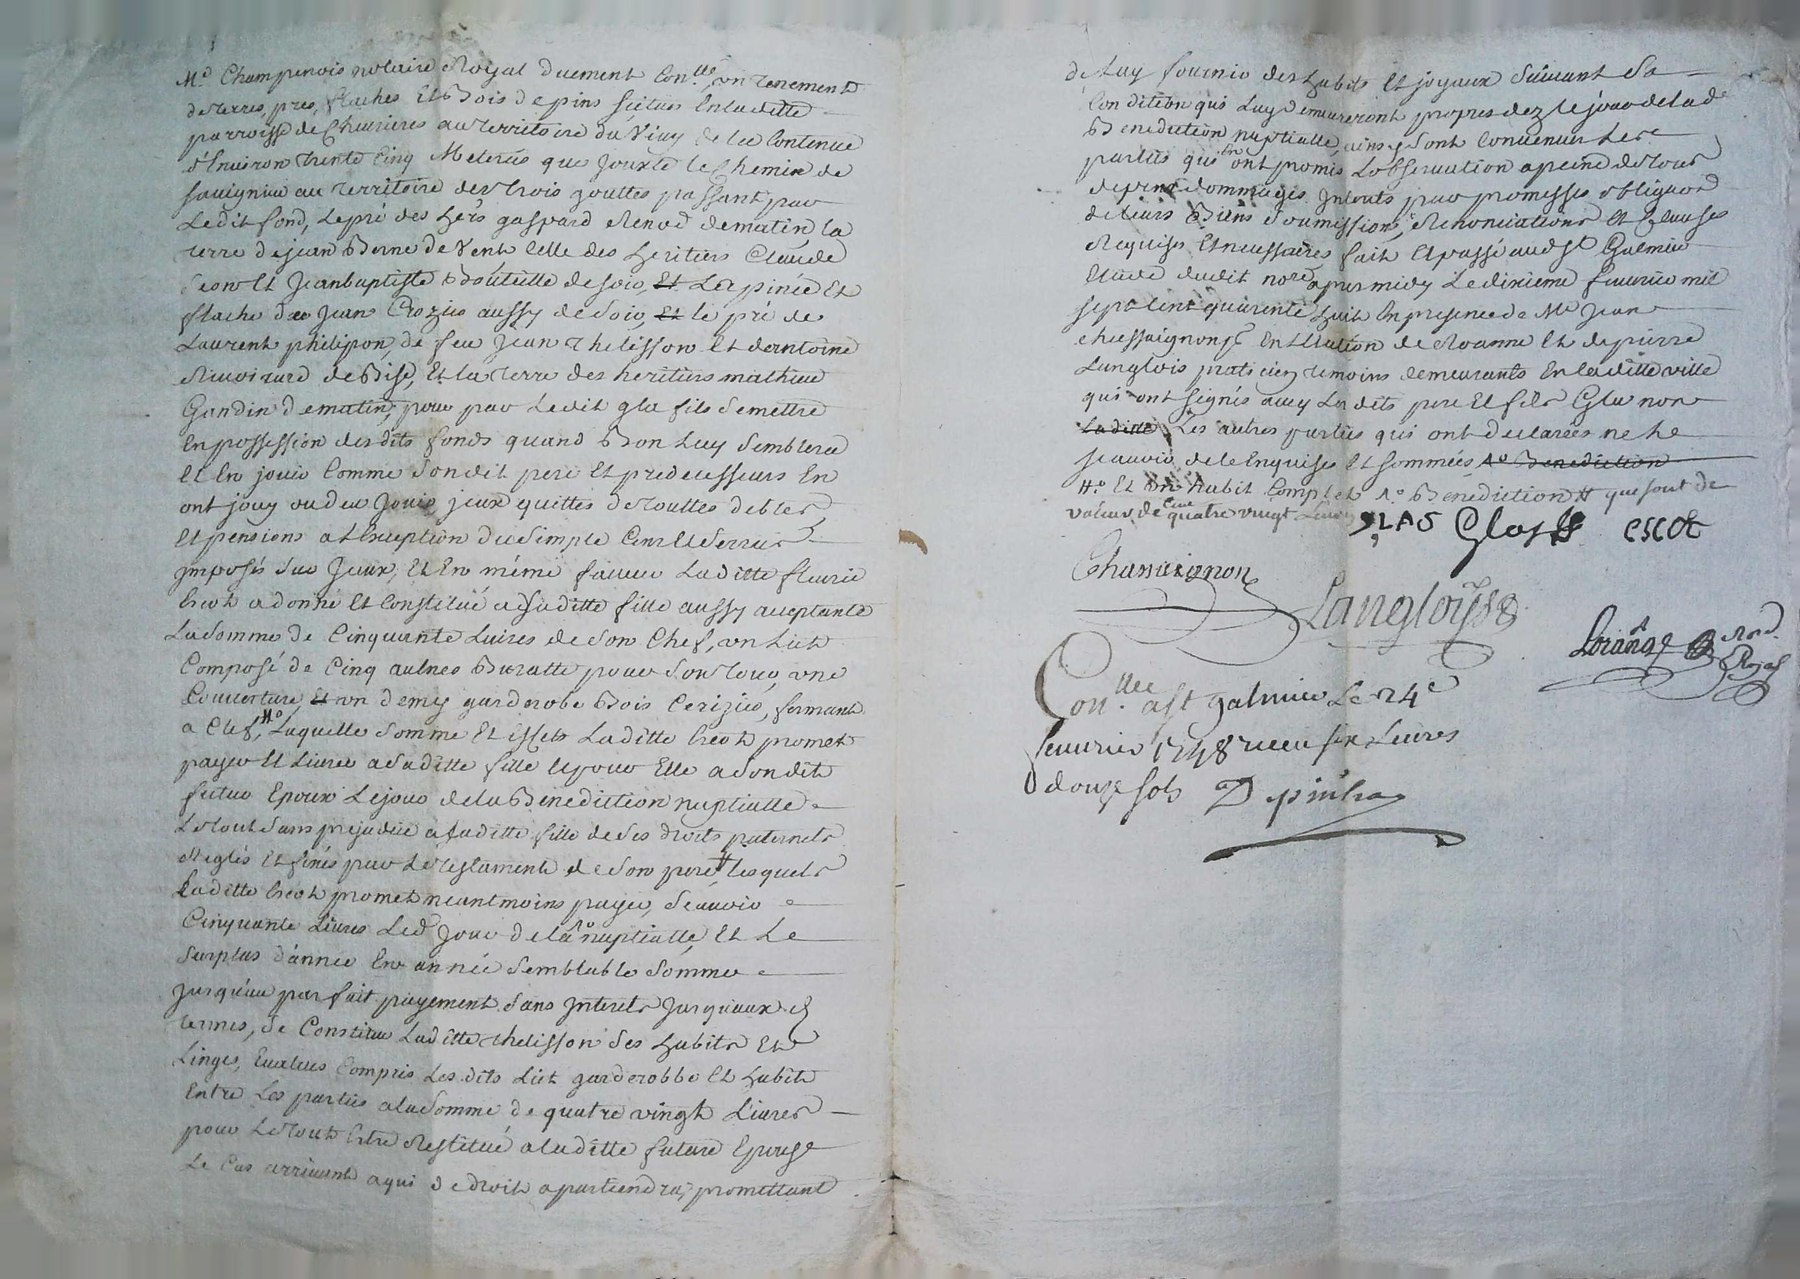 Me Champenois notaire Royal duement Con.lle, un tenement
de terres, prés, flaches Et Bois de pins scitués En laditte
parroisse de Chevrieres au territoire du Viay de la Contenue
d'Environ trente Cinq Meterés que Jouxte le Chemin de
Savignieu au territoire des trois gouttes passant par
Ledit fond, Le pré des hers gaspard Renod de matin, la
terre de jean Berne de Vent Celle des heritiers Claude
Et Jeanbaptiste Bouteille de soir, Et La pinée Et
flache de Jean Crozier aussy de Soir, Et le pré de
Laurent philipon, de feu Jean thelisson Et d'antoine
de Bise, Et la terre des heritiers mathieu
Gondin de matin, pour par Ledit gla fils se mettre
En possession desdits fonds quand Bon Luy Semblera
Et En jouir Comme Sondit pere Et predecesseurs En
ont jouy ou deu Jouir, jeux quittes de touttes debtes
Et pensions a L'exception du Simple Cens Et Servis
Imposés Sur Jceux, Et En même faveur Laditte fleurie
Escot a donné Et Constitué a Saditte fille aussy aceptante
La Somme de Cinquante Livres de Son Chef, un Lict
Composé de Cinq aulnes Buratte pour Son tour, une
Couverture, Et un demy garderobe Bois Cerizier, fermant
a Clef, #o Laquelle Somme Et effets Laditte Escot promet
payer Et Livrer a Saditte fille Et pour Elle a Sondit
futur Epoux Le jour de la Benediction nuptialle
Le tout Sans prejudice a Saditte fille de Ses droits paternels
Reglés Et fixés par Le testament de Son pere # lesquels
Laditte Escot promet neantmoins payer, Scavoir
Cinquante Livres Led jour de la Ao nuptialle, Et Le
Surplus d'année En année Semblable Somme
Jusqu'au parfait payement Sans Jnterets Jusqu'aux d
termes, Se Constitue Laditte thelisson Ses habits Et
Linges, Evalués Compris Lesdits Lict garderobbe Et habit
Entre Les parties a la Somme de quatre vingt Livres
pour Le tout Estre Restitué a laditte future Epouse
Le Cas arrivant a qui de droit apartiendra, promettant
de Luy fournir des habits Et joyaux Suivant Sa
Condition qui Luy demeureront propres dez le jour de lade
Benediction nuptialle, ainsy Sont Convenues Les
parties qui En ont promis L'observation a peine de tous
depens dommages Jnterets par promesses obligaon
de leurs Biens Soumissions, Renonciations Et Clauses
Requises Et necessaires fait Et passé aud St Galmier
Etude dudit nore apres midy Le dixieme fevrier mil
sept Cent quarente huit En presence de Me Jean
chassaignon En L'Election de Roanne Et de pierre
Langlois praticien temoins demeurants En laditte ville
qui ont Signés avec Lesdits pere Et fils Gla non
Laditte Les autres parties qui ont declarées ne le
scavoir de ce Enquises Et Sommées Ao Benediction
#o Et un habit Complet Ao Benediction # que sont de
valeur de Cent quatre vingt Livres
GLAS Glas escot
Chassaignon
Langloys
Lorange Nore Royal
Con.llee a St galmier Le 24e
fevrier 1748 receu six Livres
douze sols Depinhac